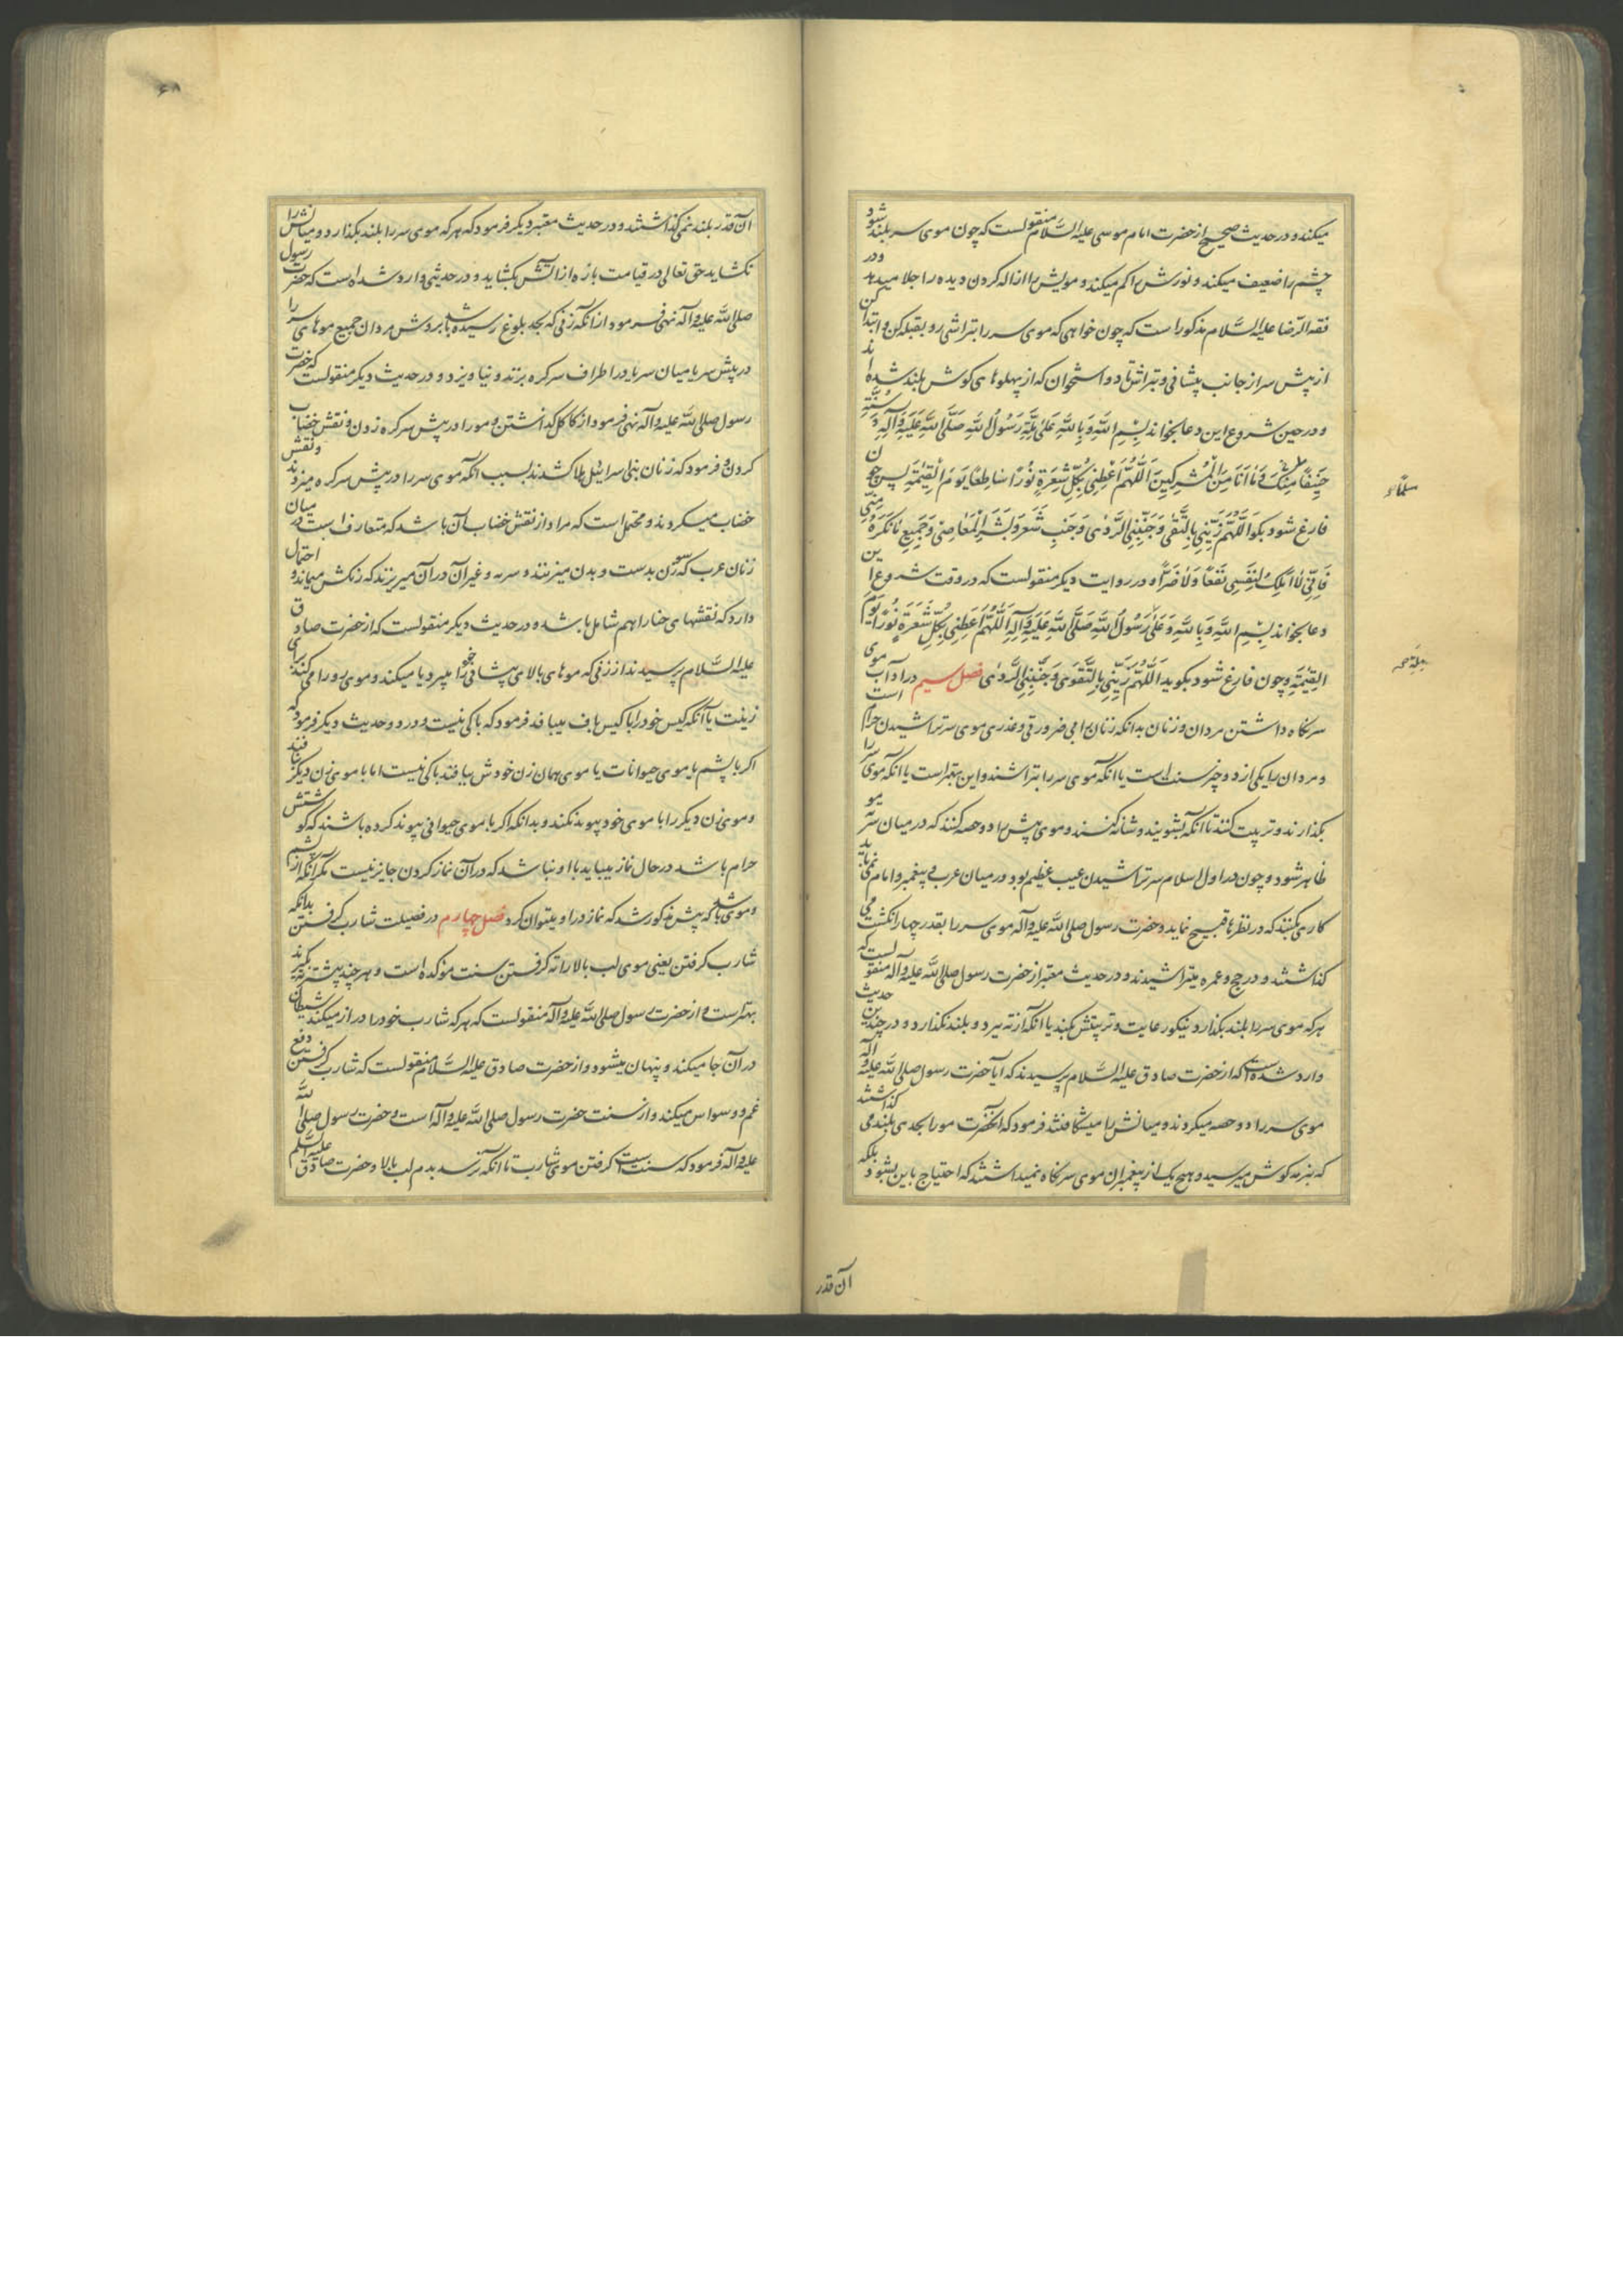 میکند و در حدیث صحیح از حضرت امام موسی علیه السّلام منقولست که چون موی سر بلند شود
چشم را ضعیف میکند و نورش را کم میکند و مویش را ازاله کردن دیده را جلا میدهد و در
فقه الرّضا علیه السّلام مذکور است که چون خواهی که موی سر را بتراشی رو بقبله کن و ابتدا کن
از پیش سر از جانب پیشانی و بتراش تا دو استخوان که از پهلوهای کوش بلند شده اند
و در حین شروع این دعا بخواند بِسْمِ اللَّهِ وَ بِاللَّهِ عَلَی مِلَّةِ رَسُولِ اللَّهِ صَلَّی اللَّهُ عَلَیْهِ وَآلِهِ وَسُنَّتِهِ
حَنِیفًا مُسْلِمًا وَمَا أَنَا مِنَ الْمُشْرِکِینَ اَللَّهُمَّ أَعْطِنِی بِکُلِّ شَعْرَةٍ نُورًا سَاطِعًا یَوْمَ الْقِیٰمَةِ پس چون
فارغ شود بکو اَللَّهُمَّ زَیِّنِّی بِالتُّقَی وَجَنِّبْنِی الرَّدَی وَجَنِّبْ شَعْرِی وَبَشَرِی الْمَعَاصِیَ وَجَمِیعَ مَا تَکْرَهُ مِنِّی
فَإِنِّی لَا أَمْلِکُ لِنَفْسِی نَفْعًا وَلَا ضَرًّا و در روایت دیکر منقولست که در وقت شروع این
دعا بخواند بِسْمِ اللَّهِ وَ بِاللَّهِ وَ عَلَی رَسُولِ اللَّهِ صَلَّی اللَّهُ عَلَیْهِ وَآلِهِ اَللَّهُمَّ أَعْطِنِی بِکُلِّ شَعْرَةٍ نُورًا یَوْمَ
الْقِیٰمَةِ و چون فارغ شود بکوید اَللَّهُمَّ زَیِّنِّی بِالتَّقْوَی وَجَنِّبْنِی الرَّدَی فصل سیم در آداب موی
سر نکاه داشتن مردان و زنان بدانکه زنان را بی ضرورتی و عذری موی سر تراشیدن حرام است
و مردان را یکی از دو چیز سنت است یا انکه موی سر را بتراشند و این بهتر است یا انکه موی را
بکذارند و تربیت کنند تا انکه بشویند و شانه کنند و موی پیش را دو حصه کنند که در میان سر ته مو
ظاهر شود و چون در اول اسلام سر تراشیدن عیب عظیم بود در میان عرب و پیغمبر و امام نمی باید
کاری بکنند که در نظرها قبیح نماید و حضرت رسول صلی اللّه علیه وآله موی سر را بقدر چهار انکشت می
کذاشتند و در حج و عمره میتراشیدند و در حدیث معتبر از حضرت رسول صلی اللّه علیه وآله منقولست که
هر که موی سر را بلند بکذارد نیکو رعایت و تربیتش بکند یا انکه از ته ببرد و بلند نکذارد و در چندین حدیث
وارد شده است که از حضرت صادق علیه السّلام پرسیدند که آیا حضرت رسول صلی اللّه علیه وآله
موی سر را دو حصه میکردند و میانش را میشکافتند فرمود که انحضرت مو را بحدی بلند می کذاشتند
که بنرمه کوش میرسید و هیچ یک از پیغمبران موی سر نکاه نمیداشتند که احتیاج باین بشود بلکه
مسلمًا
ملة
آن قدر
آن قدر بلند نمی کذاشتند و در حدیث معتبر دیکر فرمود که هر که موی سر را بلند بکذارد و میانش را
نکشاید حق تعالی در قیامت باره از آتش بکشاید و در حدیثی وارد شده است که حضرت رسول
صلی اللّه علیه وآله نهی فرمود از انکه زنی که بحد بلوغ رسیده باشد بروش مردان جمیع موهای سر را
در پیش سر یا میان سر یا در اطراف سر کره بزند و نیاویزد و در حدیث دیکر منقولست که حضرت
رسول صلی اللّه علیه وآله نهی فرمود از کاکل کذاشتن و مو را در پیش سر کره زدن و نقش خضاب
کردن و فرمود که زنان بنی اسرائیل هلاک شدند بسبب انکه موی سر را در پیش سر کره میزدند و نقش
خضاب میکردند و محتمل است که مراد از نقش خضاب آن باشد که متعارف است در میان
زنان عرب که سوزن بدست و بدن میزنند و سرمه و غیر آن در آن میریزند که رنکش میماند و احتمال
دارد که نقشهای حنا را هم شامل باشد و در حدیث دیکر منقولست که از حضرت صادق
علیه السّلام پرسیدند از زنی که موهای بالای پیشانی خود را میبرد یا میکند و موی رو را می کند برای
زینت یا آنکه کیس خود را با کیس باف میبافد فرمود که باکی نیست و در دو حدیث دیکر فرمود که
اکر با پشم یا موی حیوانات یا موی همان زن خودش ببافند باکی نیست اما با موی زن دیکر نبافند
و موی زن دیکر را با موی خود پیوند نکند و بدانکه اکر با موی حیوانی پیوند کرده باشند که کوشتش
حرام باشد در حال نماز میباید با او نباشد که در آن نماز کردن جایز نیست مکر آنکه از پشم
و موی باشد که پیش مذکور شد که نماز در او میتوان کرد فصل چهارم در فضیلت شارب کرفتن بدانکه
شارب کرفتن یعنی موی لب بالا را ته کرفتن سنت مؤکده است و هر چند بیشتر ته بکیرند
بهتر است و از حضرت رسول صلی اللّه علیه وآله منقولست که هر که شارب خود را دراز میکند شیطان
در آن جا میکند و پنهان میشود و از حضرت صادق علیه السّلام منقولست که شارب کرفتن دفع
غم و وسواس میکند و از سنت حضرت رسول صلی اللّه علیه وآله است و حضرت رسول صلی اللّه
علیه وآله فرمود که سنت است کرفتن موی شارب تا انکه برسد بدم لب بالا و حضرت صادق علیه السّلم